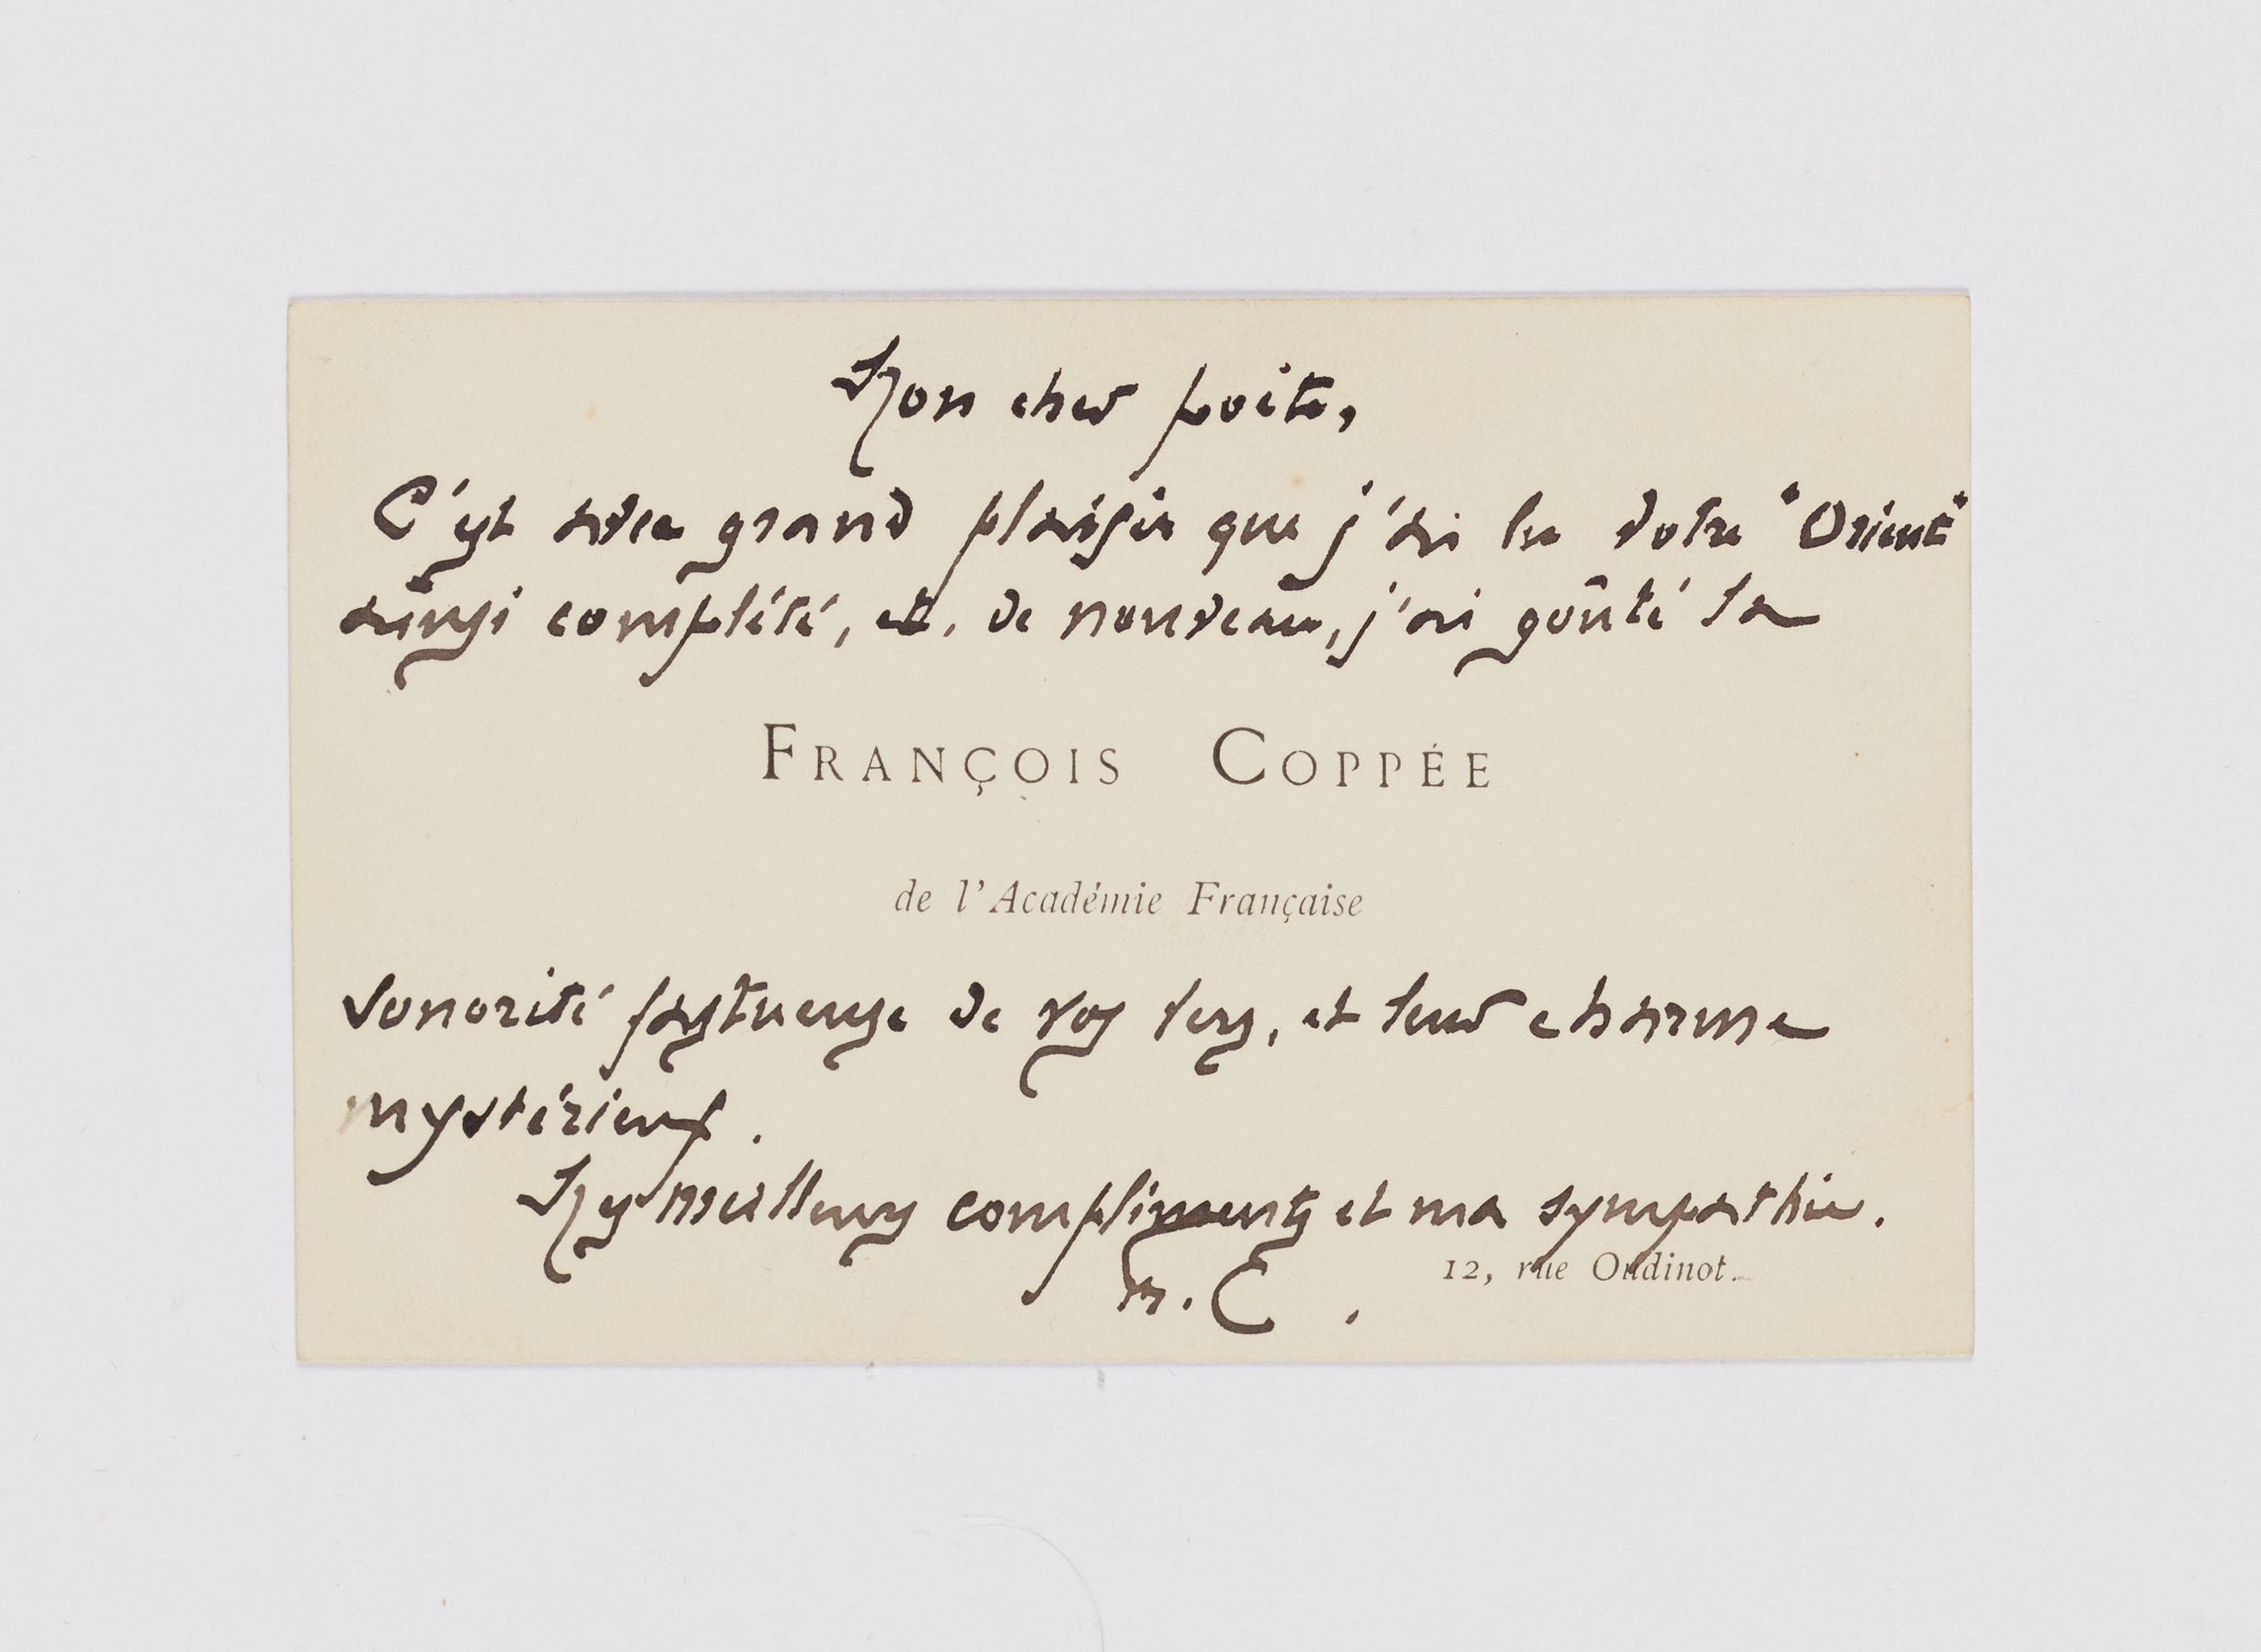 Mon cher poète,
C'est avec grand plaisir que j'ai lu votre "Orient"
ainsi complété, et, de nouveau, j'ai goûté la
FRANÇOIS COPPÉE
de l'Académie Française
sonorité fastueuse de vos vers, et leur charme
mystérieux.
Mes meilleurs compliments et ma sympathie.
12, rue Oudinot.
F. C.